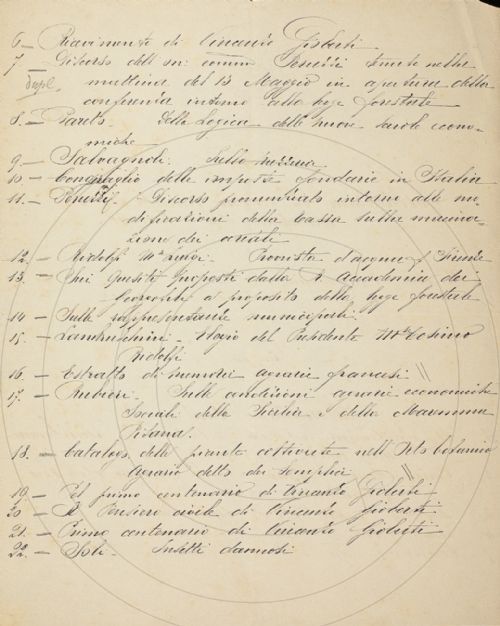 6_ Ricevimento di Vincenzo Gioberti
7_ Discorso dell' on: comm Peruzzi tenuto nella
dupl. mattina del 13 Maggio in apertura della
conferenza intorno alla legge forestale
8._ Pareto. Della Logica delle nuove scuole econo-
miche
9._ Salvagnoli. Sulla
10._ Conguaglio delle imposte fondiarie in Italia
11._ Peruzzi. Discorso pronunciato intorno alle mo-
dificazioni della tassa sulla macina-
zione dei cereali
12._ Ridolfi M.se Luigi. Provvista d'acqua p. Firenze
13._ Sui quesiti proposti dalla R. Accademia dei
Georgofili a proposito della legge forestale
14_ Sulle rappresentanze municipali.
15._ Lambruschini. Elogio del Presidente M.se Cosimo
Ridolfi
16._ Estratto di memorie agrarie francesi "
17._ Rubieri. Sulle condizioni agrarie economiche
sociali della Sicilia e della Maremma
Pisana.
18._ Catalogo delle piante coltivate nell' Orto botanico
Agrario detto dei semplici "
19._ Il primo centenario di Vincenzo Gioberti
20_ Il Pensiero civile di Vincenzo Gioberti
21._ Primo centenario di Vincenzo Gioberti
22._ Soli. Insetti dannosi